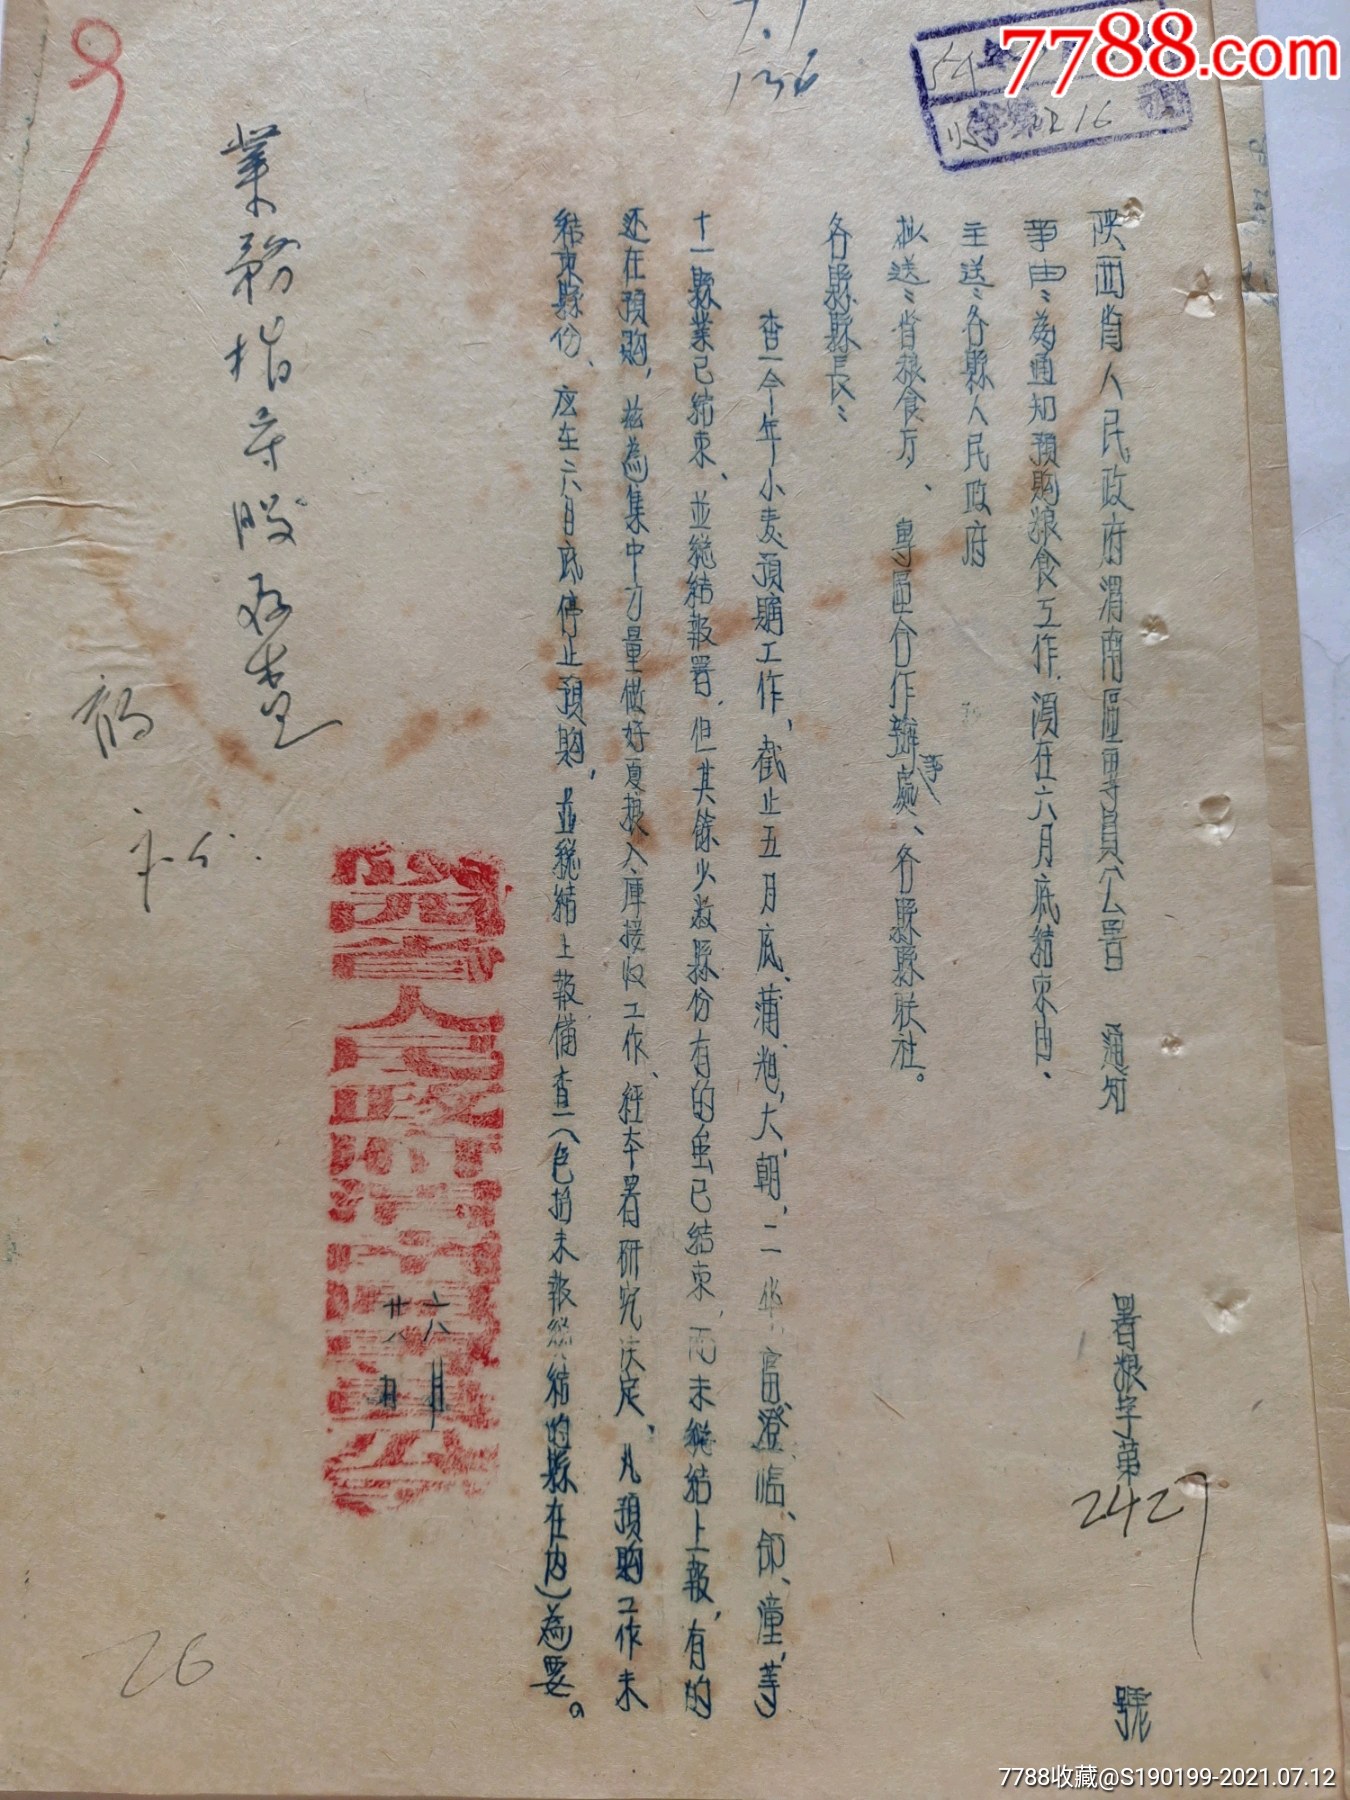 7788.com
54
字第 16
7.1
136
陕西省人民政府渭南區專員公署 通知
署粮字第2427號
事由:為通知預购粮食工作須在六月底結束由、
主送:各縣人民政府
抄送:省粮食厅、專區合作辦事處、各縣縣联社。
各縣縣長:
查今年小麦預購工作,截止五月底、蒲、旭、大、朝、二華、富、澄、临、郃、潼、等
十一縣業已结束、並總結報署,但其餘少数縣份有的虽已结束,而未總結上報,有的
还在預购,兹為集中力量做好夏粮入庫接收工作、經本署研究决定、凡預购工作未
結束縣份、应在六月底停止預购,並總結上報備查(包括未報總結的縣在内)為要。
六月
廿八日
西省人民政府渭南區專員公
業務指导股存查
7.5.
26
7788收藏@S190199-2021.07.12